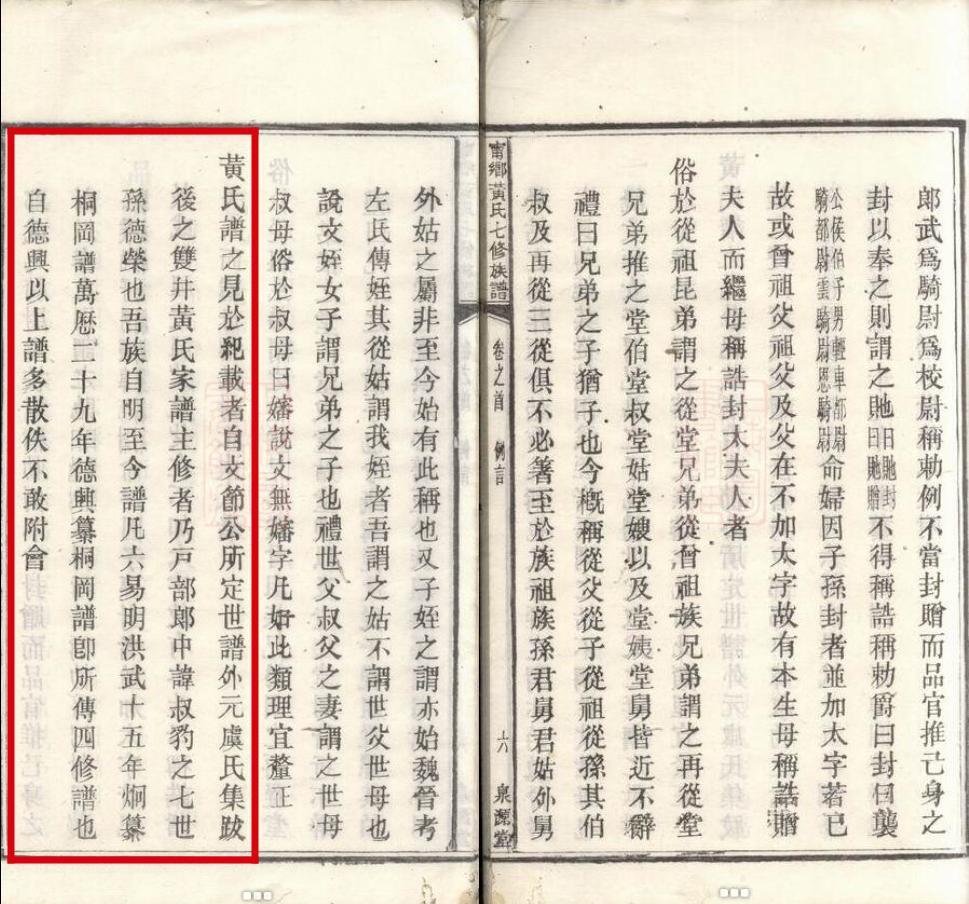 郎武爲騎尉爲校尉稱勅例不當封贈而品官推己身之
封以奉之則謂之貤曰貤封曰貤贈不得稱誥稱勅爵曰封曰襲
公侯伯子男輕車都尉騎都尉雲騎尉恩騎尉命婦因子孫封者並加太字若已
故或曾祖父祖父及父在不加太字故有本生母稱誥贈
夫人而繼母稱誥封太夫人者
俗於從祖昆弟謂之從堂兄弟從曾祖族兄弟謂之再從堂
兄弟推之堂伯堂叔堂姑堂嫂以及堂姨堂舅皆近不辭
禮曰兄弟之子猶子也今槪稱從父從子從祖從孫其伯
叔及再從三從俱不必箸至於族祖族孫君舅君姑外舅
甯鄉黃氏七修族譜
卷之首
例言
十六
泉源堂
外姑之屬非至今始有此稱也又子姪之謂亦始魏晉考
左氏傳姪其從姑謂我姪者吾謂之姑不謂世父世母也
說文姪女子謂兄弟之子也禮世父叔父之妻謂之世母
叔母俗於叔母曰嬸說文無嬸字凡如此類理宜釐正
黃氏譜之見於紀載者自文節公所定世譜外元虞氏集跋
後之雙井黃氏家譜主修者乃戸部郎中諱叔豹之七世
孫德榮也吾族自明至今譜凡六易明洪武十五年炯纂
桐岡譜萬厯二十九年德興纂桐岡譜卽所傳四修譜也
自德興以上譜多散佚不敢附會